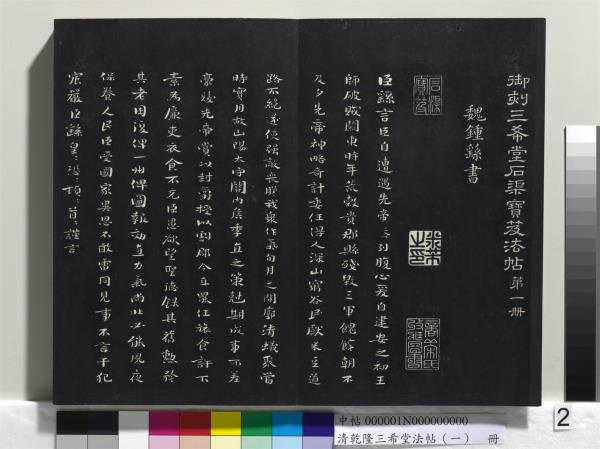 御刻三希堂石渠寶笈法帖第一冊
魏鍾繇書
臣繇言臣自遭遇先帝忝列腹心爰自建安之初王
師破賊關東時年荒穀貴郡縣殘毀三軍餽饟朝不
及夕先帝神略奇計委任得人深山窮谷民獻米豆道
路不絕遂使强敵喪膽我衆作氣旬月之間廓清蟻聚當
時實用故山陽太守關內侯季直之策尅期成事不差
豪髮先帝賞以封爵授以劇郡今直罷任旅食許下
素為廉吏衣食不充臣愚欲望聖德錄其舊勳矜
其老困復俾一州俾圖報効直力氣尚壯必能夙夜
保養人民臣受國家異恩不敢雷同見事不言干犯
宸嚴臣繇皇=恐=頓=首=謹言
中帖 000001N000000000
清乾隆三希堂法帖(一) 冊
2